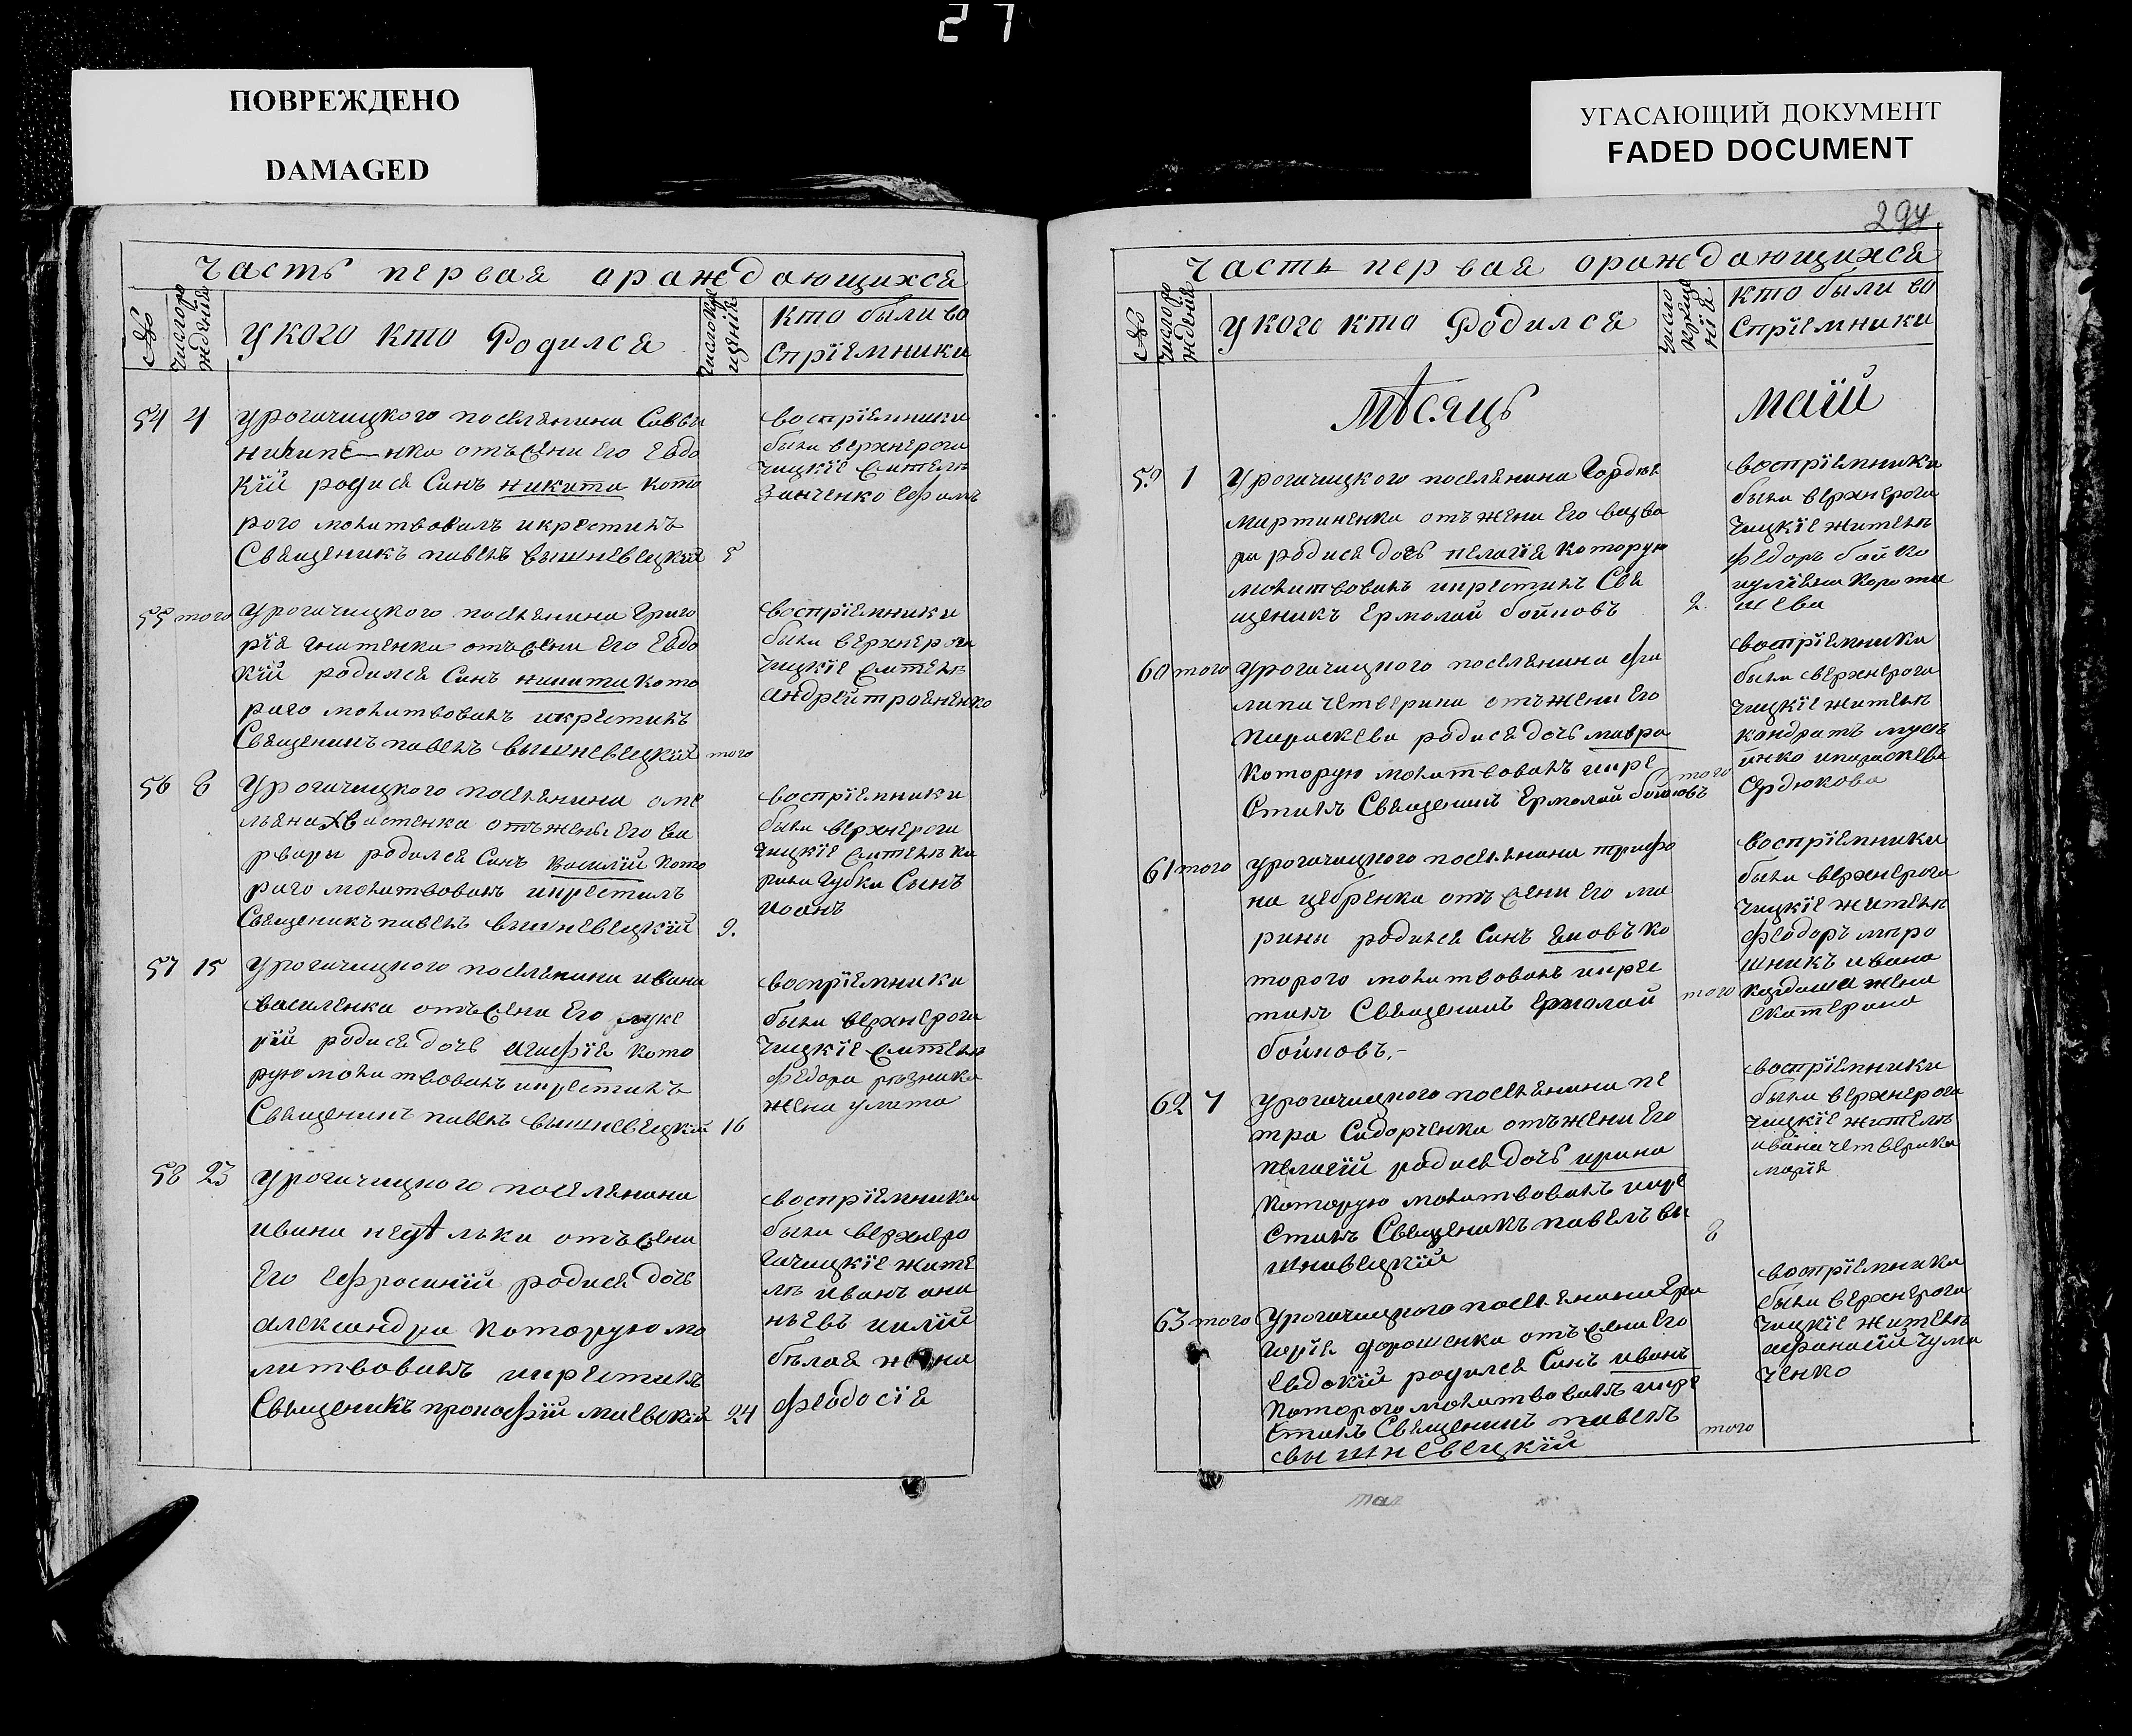 27
ПОВРЕЖДЕНО
DAMAGED
УГАСАЮЩИЙ ДОКУМЕНТ
FADED DOCUMENT
Часть первая ораждающихся
№
Число ро
ждения
У кого кто Родился
Число кре
щения
кто были во
спріемники
54 4 У рогачицкого поселянина Саввы
ничипе—нка отъ жени его Евдо
кіи родися Синъ никита кото
рого молитвовалъ и крестилъ
Священикъ павелъ вышневецкій 5
воспріемники
были верхнерога
чицкіе жителѣ
Зинченко Ефимъ
55 того У рогачицкого поселянина Григо
рія отъ жени его Евдо
кіи родился Синъ никита кото
раго молитвовалъ и крестилъ
Священикъ павелъ вышневецкій того
воспріемники
были верхнерога
чицкіе жителѣ
андрей трояненко
56 8 У рогачицкого поселянина оме
льяна хвастенка отъ жены его ва
рвары родился Синъ василій кото
раго молитвовалъ и крестилъ
Священикъ павелъ вышневецкій 9.
воспріемники
были верхнерога
чицкіе жителѣ ки
рила губка Сынъ
иоанъ
57 15 У рогачицкого поселянина ивана
василенка отъ жени его луке
рїи родися дочь агафїя кото
рую молитвовалъ и крестилъ
Священикъ павелъ вышневецкій 16
воспріемники
были верхнерога
чицкіе жителѣ
федора резника
жена улита
58 23 У рогачицкого поселянина
ивана недѣлька отъ жени
его ефросиніи родися дочь
александра которую мо
литвовалъ и крестилъ
Священикъ прокофій маевскій 24
воспріемники
были верхнеро
гачицкіе жите
лѣ иванъ ана
ньевъ и
бѣлая жена
феодосія
294
Часть первая ораждающихся
№
Число ро
ждения
У кого кто Родился
число
креще
нія
кто были во
спріемники
Мѣсяцъ маїй
59 1 У рогачицкого поселянина Гордѣя
мартиненка отъ жени его варва
ри родися дочь пелагія которую
молитвовалъ и крестилъ Свя
щеникъ Ермолай бойковъ 2.
воспріемники
были верхнерога
чицкіе жителѣ
федоръ бойко
иуліяна короты
шева
60 того У рогачицкого поселянина фи
липа четверика отъ жени его
параскеви родися дочь мавра
которую молитвовалъ и кре
стилъ Священикъ Ермолай бойковъ того
воспріемники
были верхнерога
чицкіе жителѣ
кондратъ мусѣ
инко и параскева
Сердюкова
61 того У рогачицкого поселянина трифо
на цебренка отъ жени его ма
рини родился Синъ иовъ ко
торого молитвовалъ и крес
тилъ Священикъ Ермолай
бойковъ.- того
воспріемники
были верхнерога
чицкіе жителѣ
феодоръ миро
шникъ ивана
кардаша жена
екатерина
62 7 У рогачицкого поселянина пе
тра Сидорченка отъ жени его
пелагіи родися дочь ирина
которую молитвовалъ и кре
стилъ Священикъ павелъ вы
шнивецкій 8
воспріемники
были верхнерога
чицкіе жителѣ
ивана четверика
марїя
63 того У рогачицкого поселянина гри
горія дорошенка отъ жени его
евдокіи родился Синъ иванъ
которого молитвовалъ и кре
стилъ Священикъ павелъ
вышневецкїй того
воспріемники
были верхнерога
чицкіе жителѣ
афанасій чума
ченко